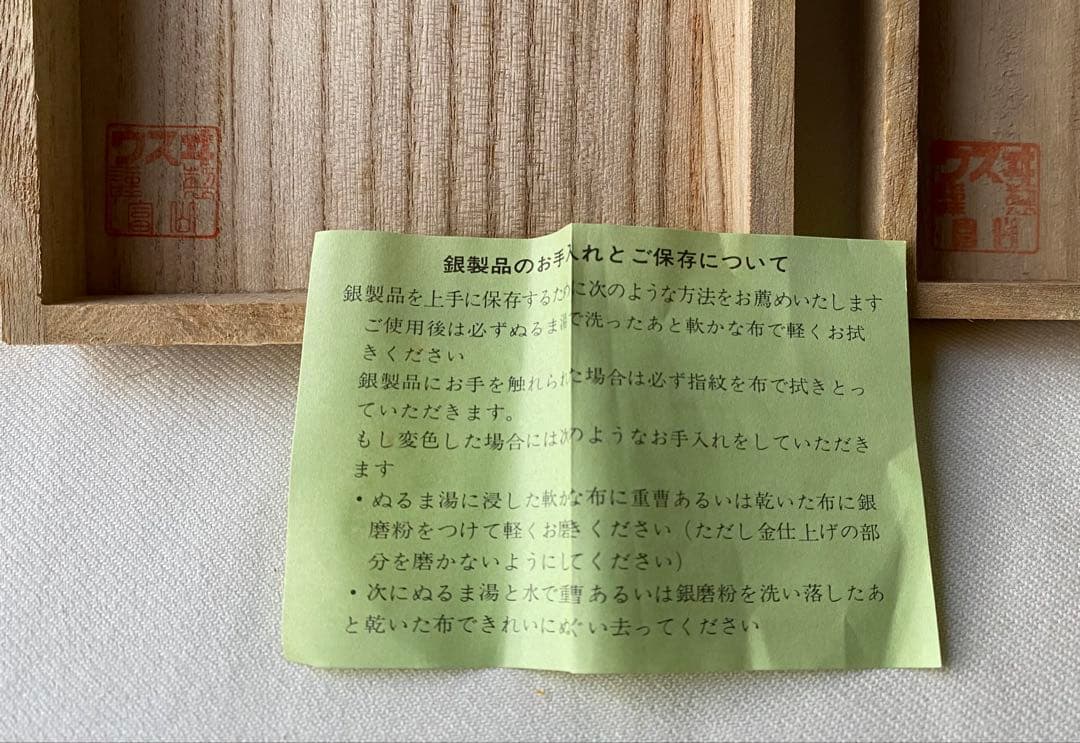 ウスヰ
謹製
銀製品のお手入れとご保存について
銀製品を上手に保存するために次のような方法をお薦めいたします
ご使用後は必ずぬるま湯で洗ったあと軟かな布で軽くお拭
きください
銀製品にお手を触れられた場合は必ず指紋を布で拭きとっ
ていただきます。
もし変色した場合には次のようなお手入れをしていただき
ます
・ぬるま湯に浸した軟かな布に重曹あるいは乾いた布に銀
磨粉をつけて軽くお磨きください(ただし金仕上げの部
分を磨かないようにしてください)
・次にぬるま湯と水で重曹あるいは銀磨粉を洗い落したあ
と乾いた布できれいにぬぐい去ってください
ウスヰ
謹製